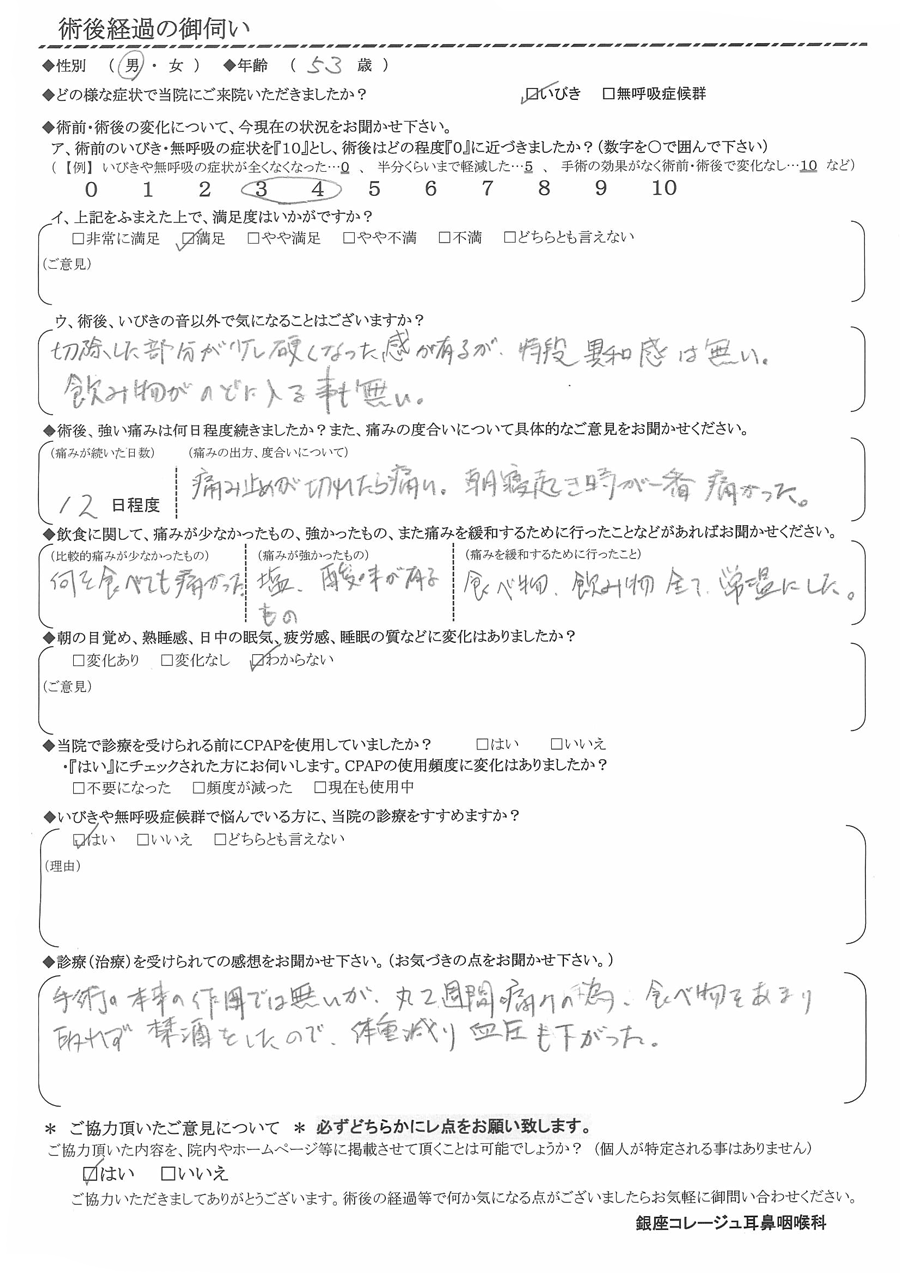 術後経過の御伺い
◆性別 （ 男 ・ 女 ） ◆年齢 （ 53 歳 ）
◆どの様な症状で当院にご来院いただきましたか？ ☑いびき □無呼吸症候群
◆術前・術後の変化について、今現在の状況をお聞かせ下さい。
ア、術前のいびき・無呼吸の症状を『10』とし、術後はどの程度『0』に近づきましたか？（数字を○で囲んで下さい）
（【例】 いびきや無呼吸の症状が全くなくなった…0 、 半分くらいまで軽減した…5 、 手術の効果がなく術前・術後で変化なし…10 など）
0 1 2 3 4 5 6 7 8 9 10
イ、上記をふまえた上で、満足度はいかがですか？
□非常に満足 ☑満足 □やや満足 □やや不満 □不満 □どちらとも言えない
（ご意見）
ウ、術後、いびきの音以外で気になることはございますか？
切除した部分が少し硬くなった感が有るが、特段異和感は無い。
飲み物がのどに入る事も無い。
◆術後、強い痛みは何日程度続きましたか？また、痛みの度合いについて具体的なご意見をお聞かせください。
（痛みが続いた日数） （痛みの出方、度合いについて）
12 日程度 痛み止めが切れたら痛い。朝寝起き時が一番痛かった。
◆飲食に関して、痛みが少なかったもの、強かったもの、また痛みを緩和するために行ったことなどがあればお聞かせください。
（比較的痛みが少なかったもの） （痛みが強かったもの） （痛みを緩和するために行ったこと）
何を食べても痛かった 塩、酸味が有る 食べ物、飲み物全て、常温にした。
もの
◆朝の目覚め、熟睡感、日中の眠気、疲労感、睡眠の質などに変化はありましたか？
□変化あり □変化なし ☑わからない
（ご意見）
◆当院で診療を受けられる前にCPAPを使用していましたか？ □はい □いいえ
・『はい』にチェックされた方にお伺いします。CPAPの使用頻度に変化はありましたか？
□不要になった □頻度が減った □現在も使用中
◆いびきや無呼吸症候群で悩んでいる方に、当院の診療をすすめますか？
☑はい □いいえ □どちらとも言えない
（理由）
◆診療（治療）を受けられての感想をお聞かせ下さい。（お気づきの点をお聞かせ下さい。）
手術の本来の作用では無いが、丸2週間痛みの為、食べ物をあまり
取れず禁酒をしたので、体重減り血圧も下がった。
＊ ご協力頂いたご意見について ＊ 必ずどちらかにレ点をお願い致します。
ご協力頂いた内容を、院内やホームページ等に掲載させて頂くことは可能でしょうか？（個人が特定される事はありません）
☑はい □いいえ
ご協力いただきましてありがとうございます。術後の経過等で何か気になる点がございましたらお気軽に御問い合わせください。
銀座コレージュ耳鼻咽喉科